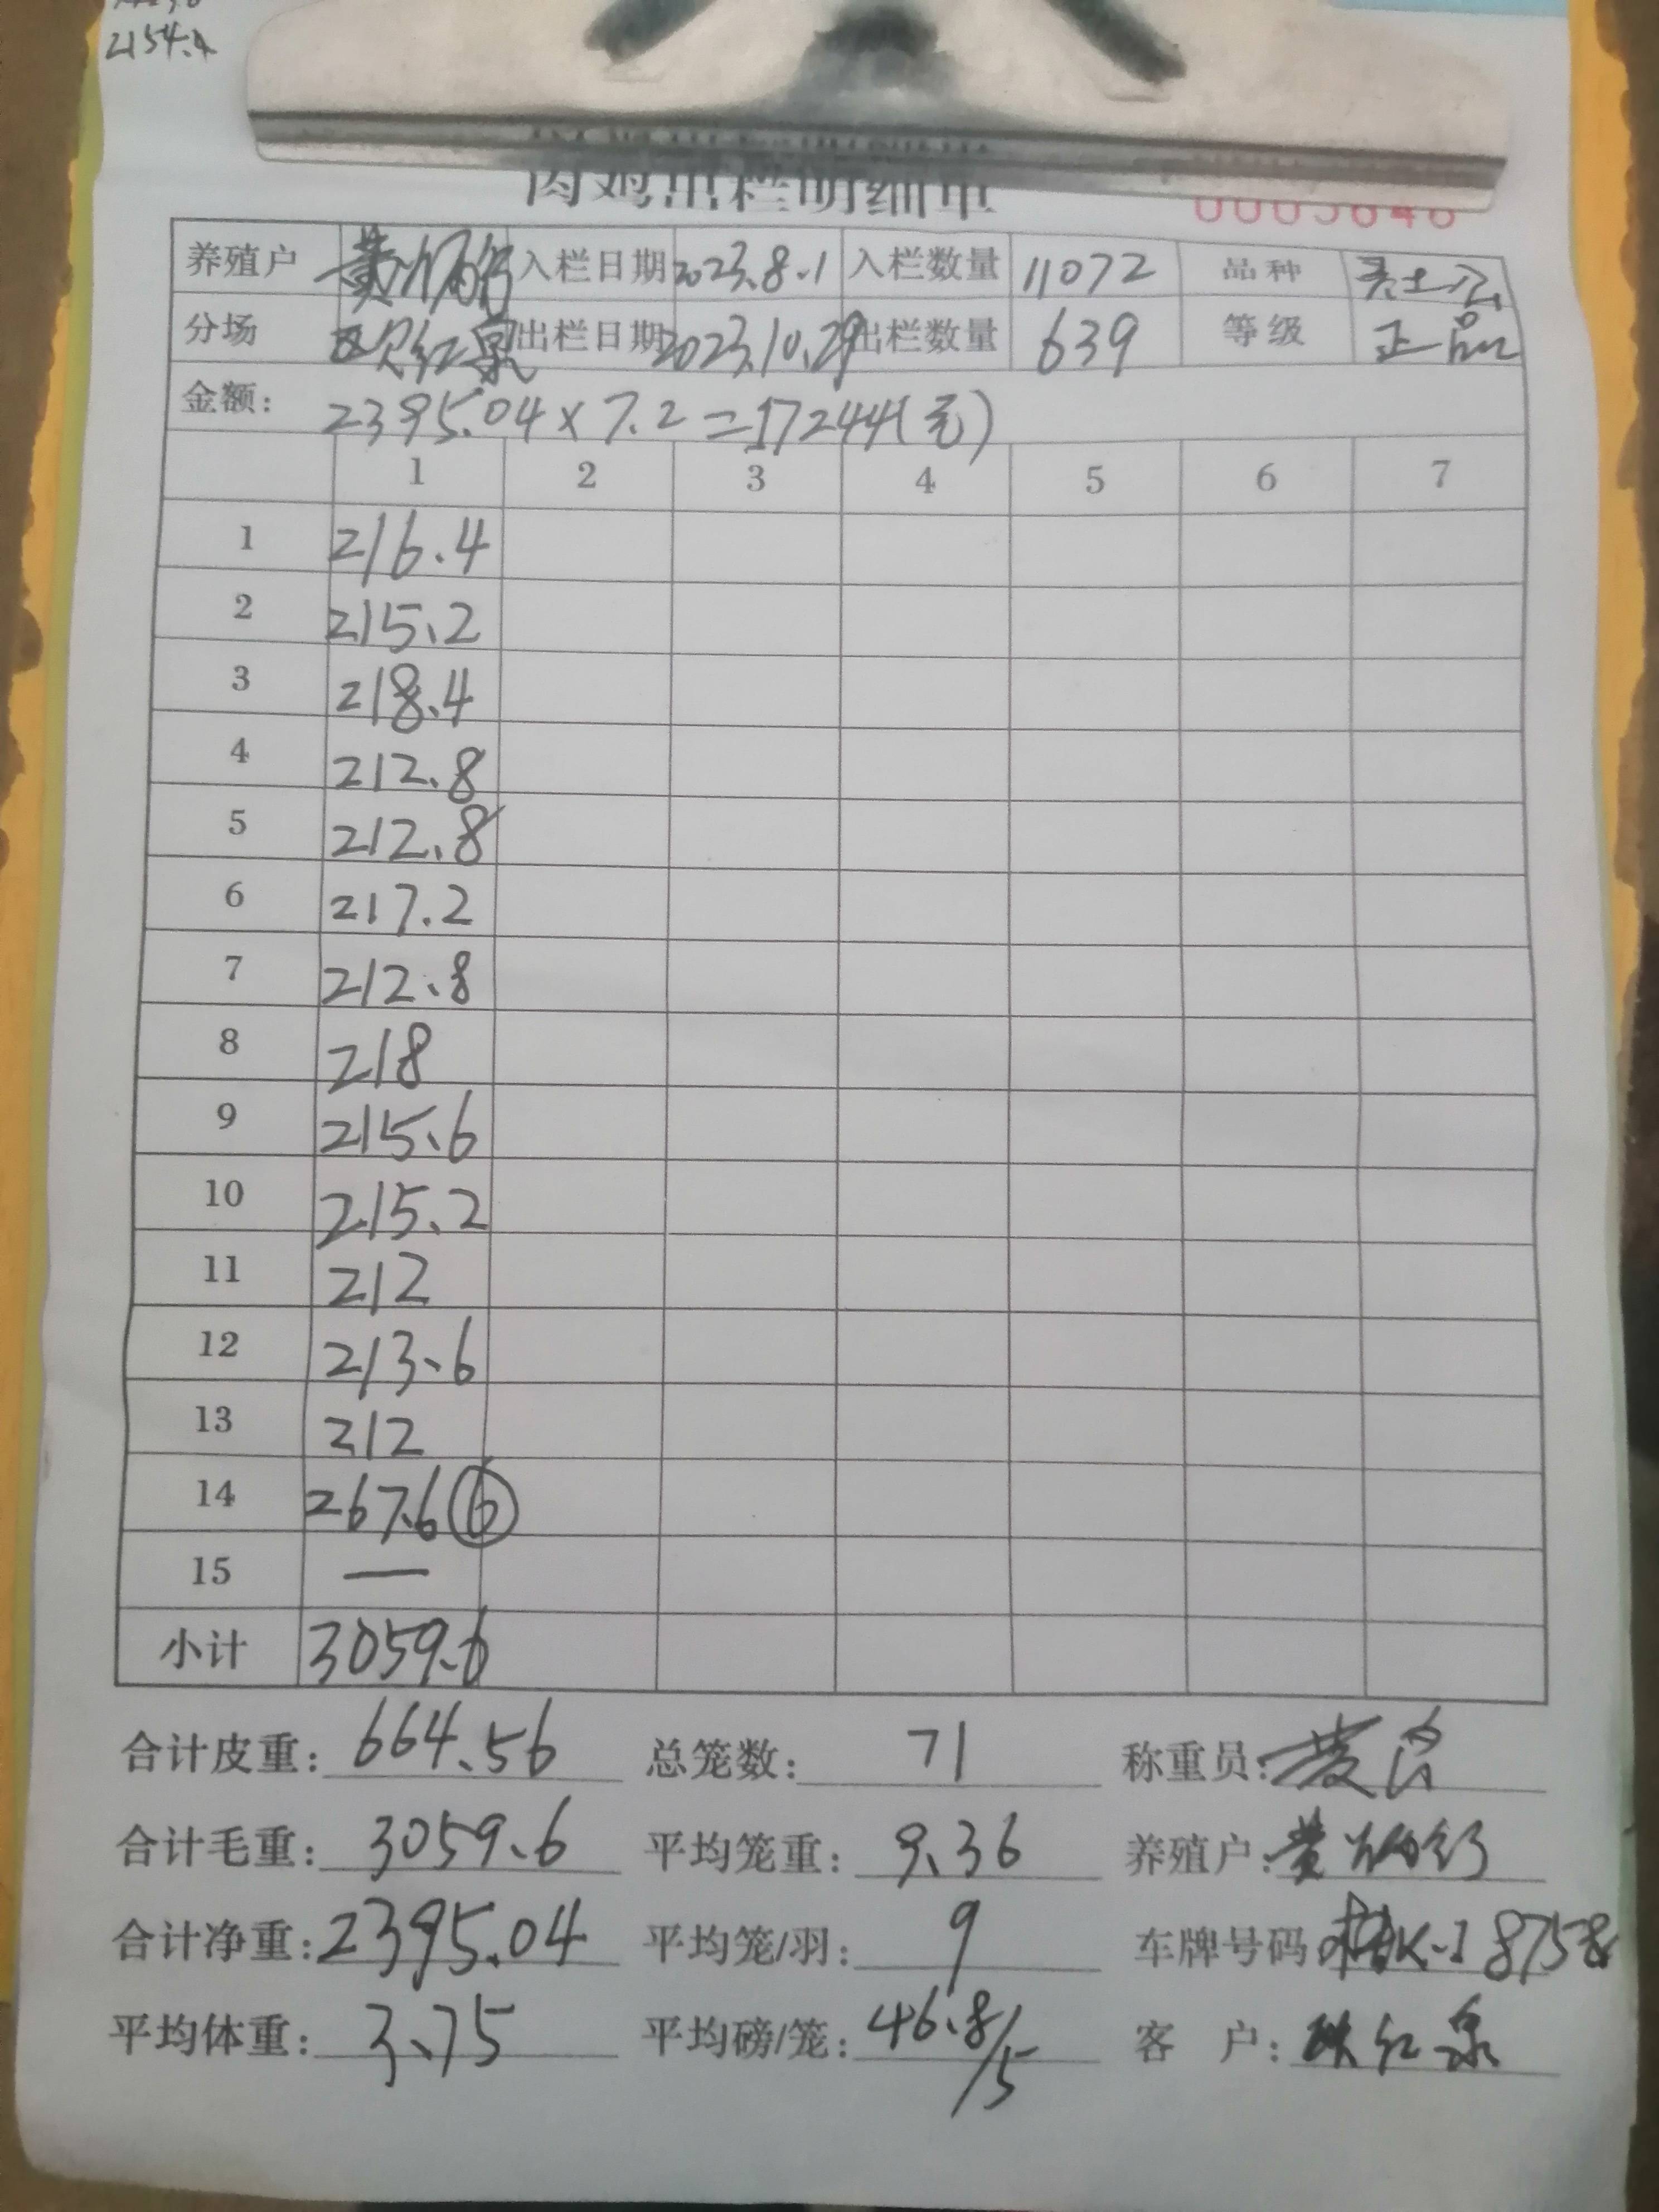 2154.4
肉鸡出栏明细单
养殖户 黄炳 入栏日期 2023.8.1 入栏数量 11072 品种
分场 红泉 出栏日期 2023.10.29 出栏数量 639 等级 正品
金额: 2395.04×7.2=17244(元)
1 2 3 4 5 6 7
1 216.4
2 215.2
3 218.4
4 212.8
5 212.8
6 217.2
7 212.8
8 218
9 215.6
10 215.2
11 212
12 213.6
13 212
14 267.6 ⑥
15 —
小计 3059.6
合计皮重: 664.56 总笼数: 71 称重员: 黄
合计毛重: 3059.6 平均笼重: 9.36 养殖户: 黄炳
合计净重: 2395.04 平均笼/羽: 9 车牌号码 桂K-18758
平均体重: 3.75 平均磅/笼: 46.8/5 客 户: 红泉